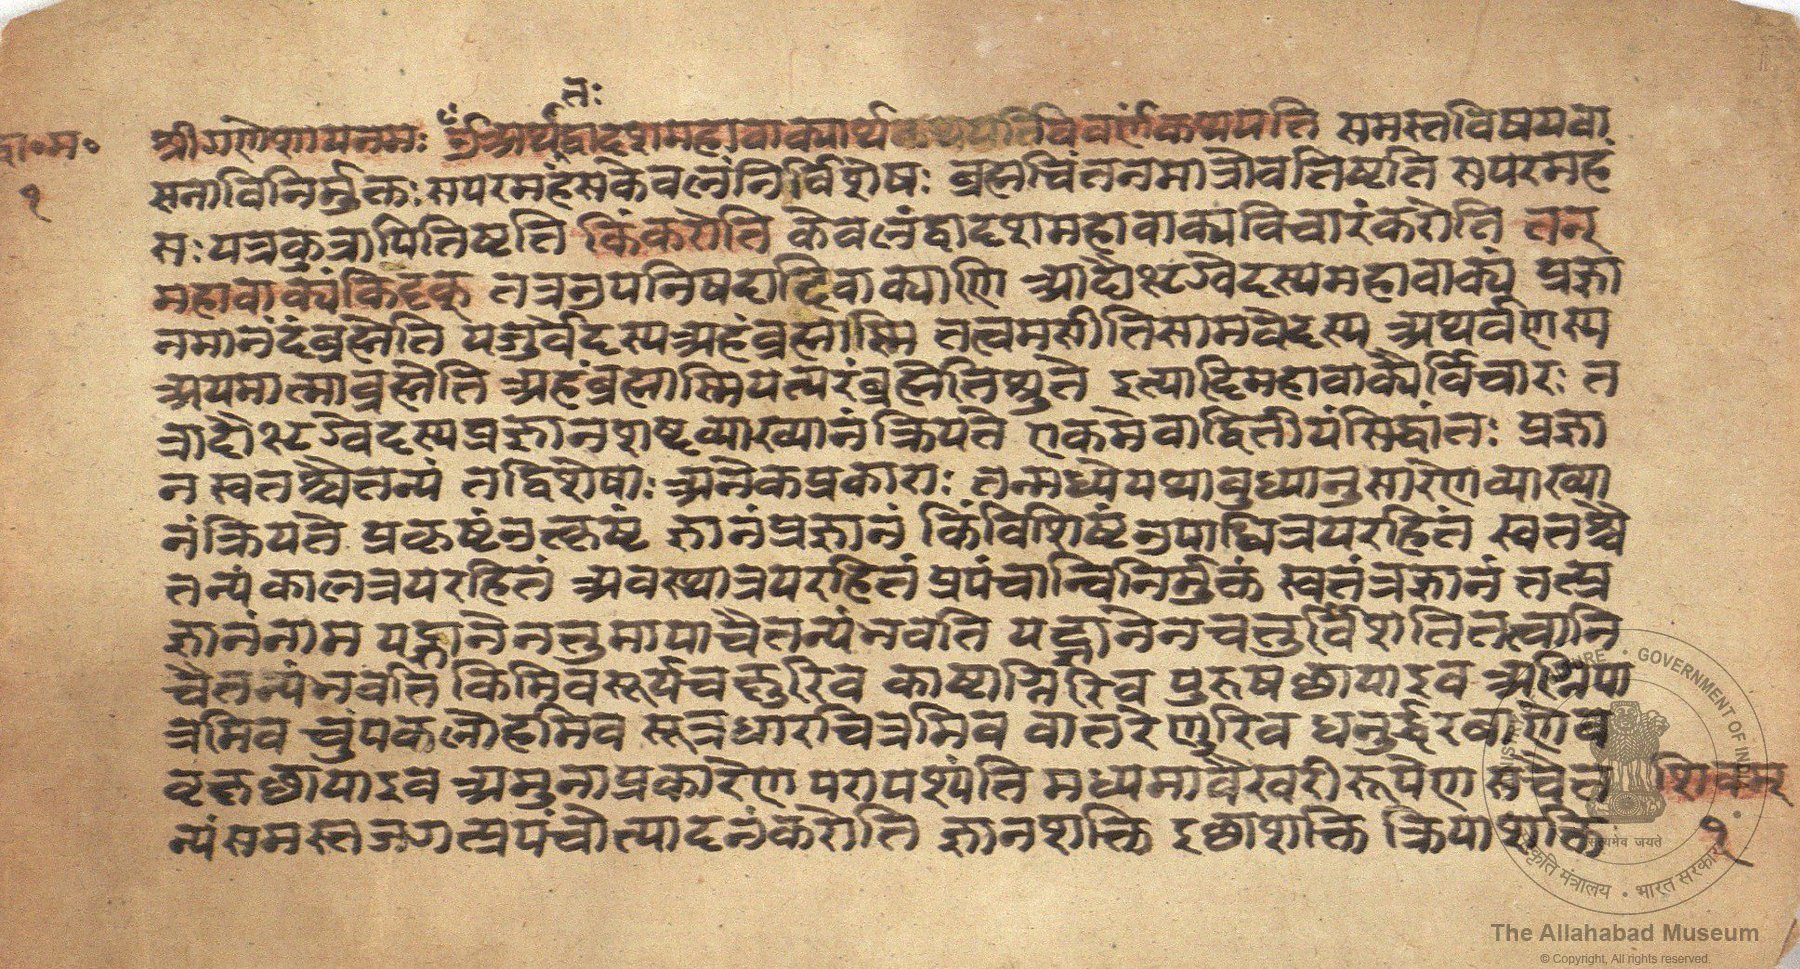 तः
द्वा॰म॰
१
श्रीगणेशायनमः ॐअर्थद्वादशमहावाक्यार्थ विवर्णकथयति समस्तविषयवा
सनाविनिर्मुक्तः सपरमहंसकेवलंनिर्विशेषः ब्रह्मचिंतनमात्रोवतिष्टति सपरमहं
सः यत्रकुत्रापितिष्टति किंकरोति केवलंद्वादशमहावाक्यविचारंकरोति तन्
महावाक्यंकिदृक् तत्रउपनिषदादिवाक्याणि आदोऋग्वेदस्यमहावाक्यं प्रज्ञा
नमानंदंब्रह्मेति यजुर्वेदस्यअहंब्रह्मास्मि तत्वमसीतिसामवेदस्य अथर्वणस्य
अयमात्माब्रह्मेति अहंब्रह्मास्मियत्परंब्रह्मेतिश्रुते इत्यादिमहावाक्यैर्विचारः त
त्रादोऋग्वेदस्यप्रज्ञानशष्टव्याख्यानंक्रियते एकमेवाद्वितीयंसिद्धांतः प्रज्ञा
न स्वतश्चैतन्यं तद्विशेषाः अनेकप्रकाराः तन्मध्येयथाबुध्यानुसारेणव्याख्या
नंक्रियते प्रकृष्टंउत्कृष्टं ज्ञानंप्रज्ञानं किंविशिष्टंउपाधित्रयरहितं स्वतश्चै
तन्यंकालत्रयरहितं अवस्थात्रयरहितंप्रपंचान्विनिर्मुक्तं स्वतंत्रज्ञानं तत्प्र
ज्ञानंनाम यद्ज्ञानेनतुमायाचैतन्यंभवति यद्ज्ञानेनचतुर्विंशतितत्वानि
चैतन्यंभवति किमिवसूर्यचक्षुरिव काष्टाग्निरिव पुरुषछायाइव अग्निपा
त्रमिव चुंपकलोहमिव सूत्रधारचित्रमिव वातरेणुरिव धनुर्द्धरबाणेव
वृक्षछायाइव अमुनाप्रकारेण परापश्यंति मध्यमावैखरीरूपेण सचैत
शिवम्
न्यंसमस्तजगत्प्रपंचोत्पादनंकरोति ज्ञानशक्ति इछाशक्ति क्रियाशक्ति
१
MINISTRY OF CULTURE • GOVERNMENT OF INDIA
सत्यमेव जयते
संस्कृति मंत्रालय • भारत सरकार
The Allahabad Museum
© Copyright, All rights reserved.